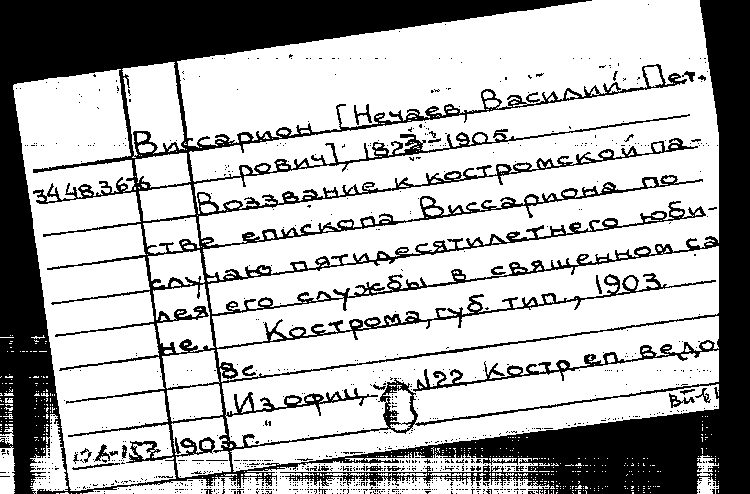 Виссарион [Нечаев, Василий Пет.
рович], 1823-1905.
3448.3676
Воззвание к костромской па-
стве епископа Виссариона по
случаю пятидесятилетнего юби-
лея его службы в священном са
не. Кострома, губ. тип., 1903.
8с.
„Из офиц. №22 Костр еп. ведо
1903г."